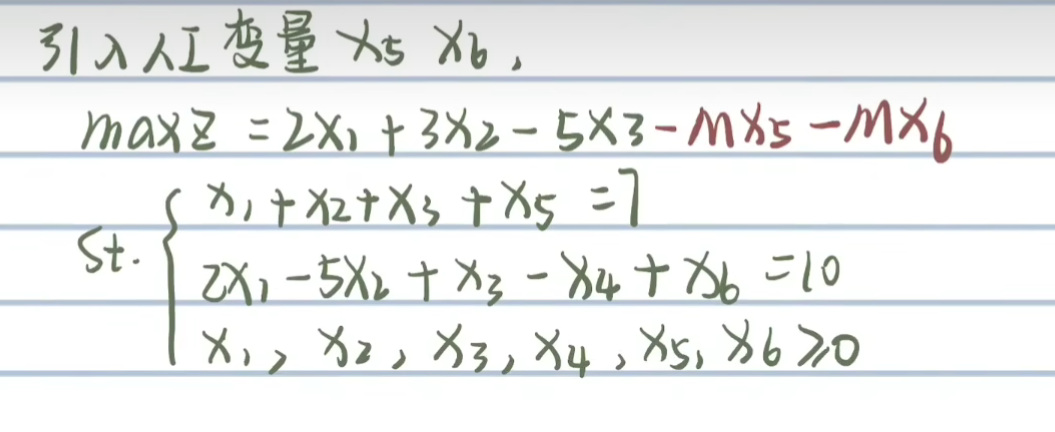 引入人工变量 x5 x6,
maxz = 2x1 + 3x2 - 5x3 - Mx5 - Mx6
x1 + x2 + x3 + x5 = 7
St. { 2x1 - 5x2 + x3 - x4 + x6 = 10
x1, x2, x3, x4, x5, x6 ≥ 0